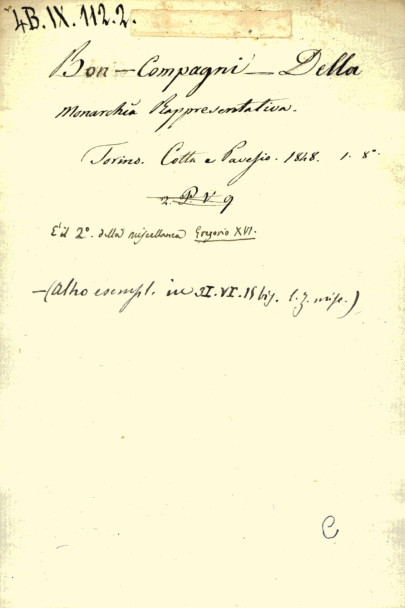 4B.IX.112.2.
Bon-Compagni - Della
Monarchia Rappresentativa.
Torino. Cotta e Pavesio. 1848. 1. 8°
2. P V 9
È il 2°. della miscellanea Gregorio XVI.
-(Altro esempl. in VI.15 bis.
C